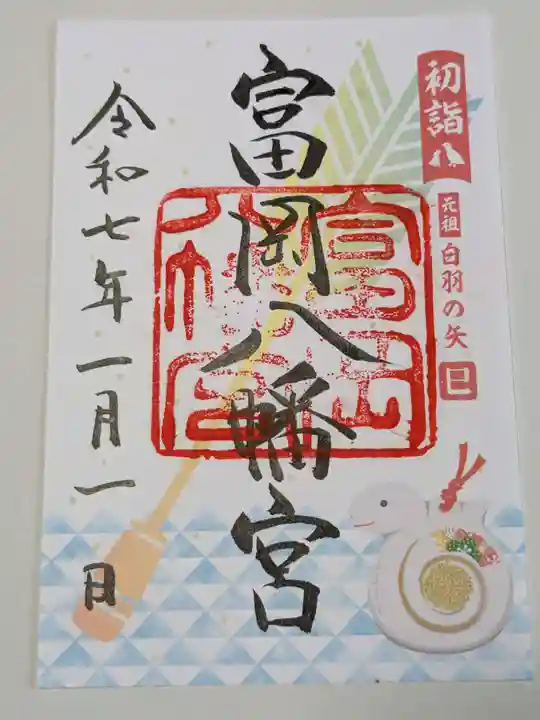 初詣
元祖
白羽の矢
巳
富岡八幡宮
令和七年一月一日